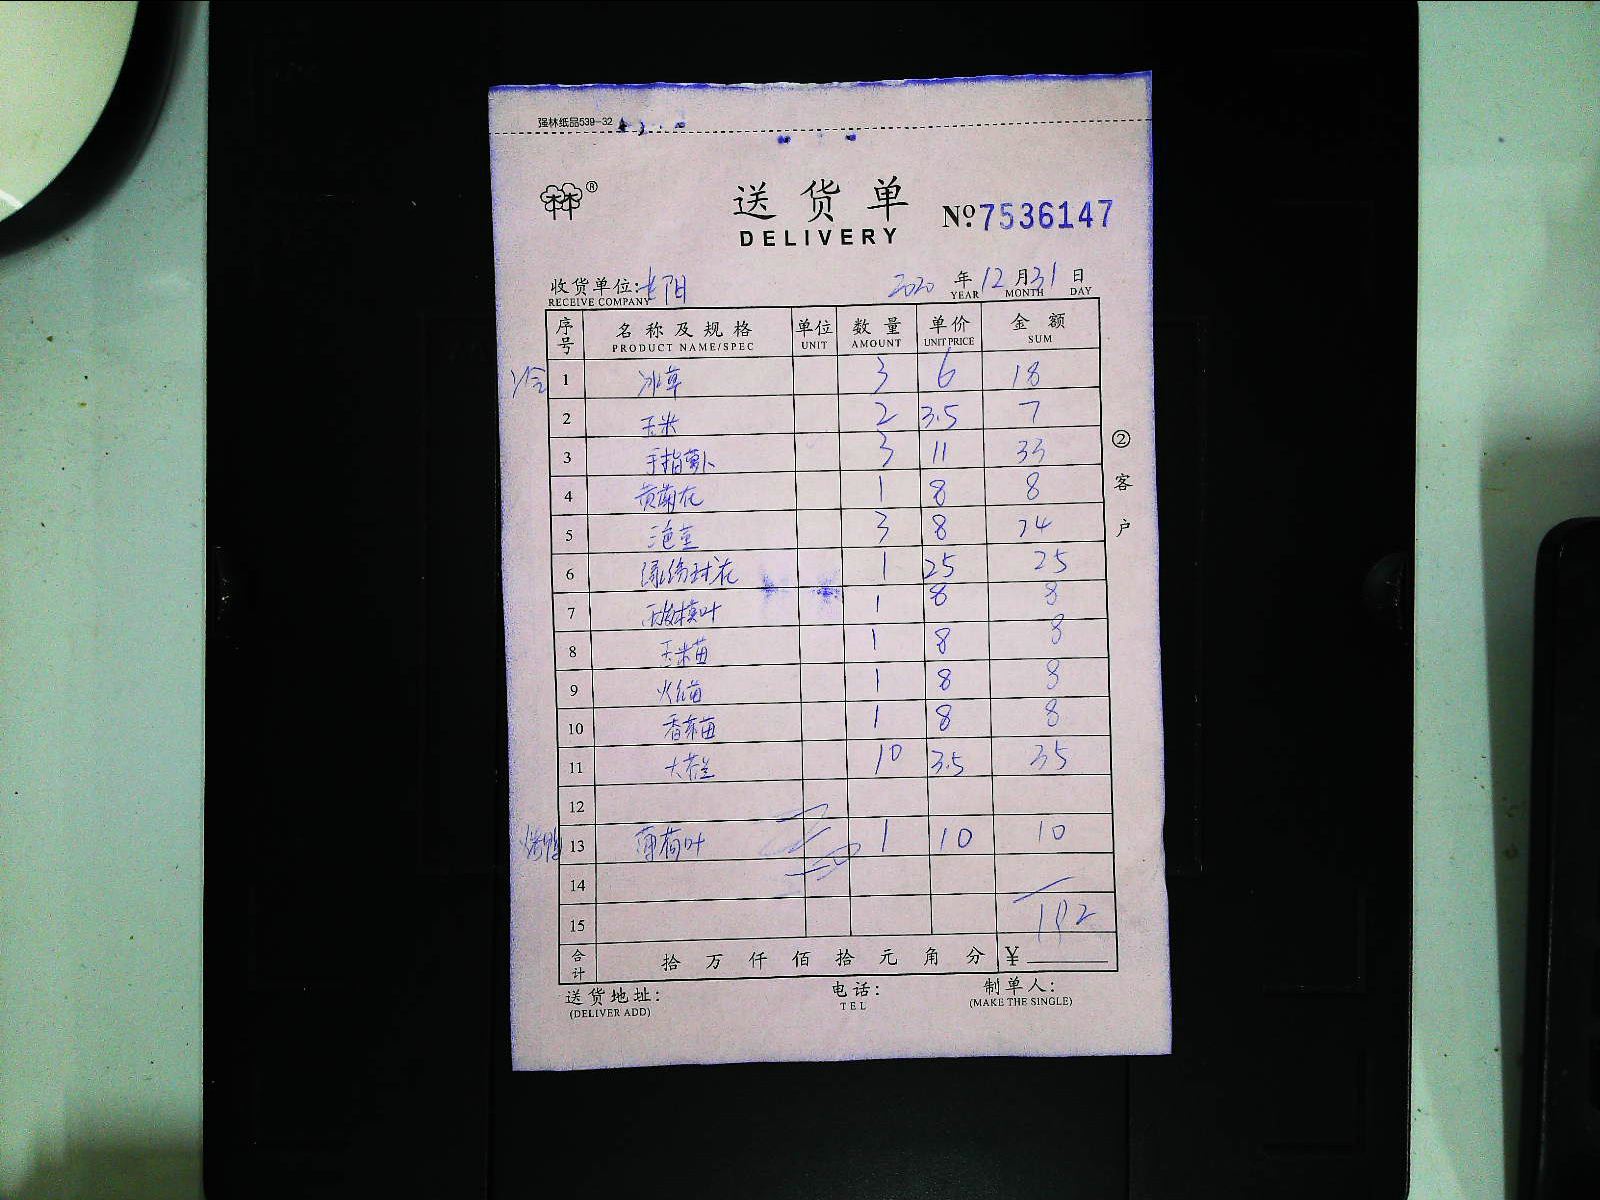 强林纸品539-32
林®
送货单
DELIVERY
Nº:7536147
收货单位: 2020 年 12 月 31 日
RECEIVE COMPANY YEAR MONTH DAY
序号 名称及规格 单位 数量 单价 金额
PRODUCT NAME/SPEC UNIT AMOUNT UNIT PRICE SUM
冷 1 冰草 3 6 18
2 玉米 2 3.5 7
3 手指萝卜 3 11 33
4 黄菊花 1 8 8
5 3 8 24
6 1 25 25
7 1 8 8
8 玉米苗 1 8 8
9 1 8 8
10 1 8 8
11 10 3.5 35
12
13 薄荷叶 1 10 10
14
15 192
合计 拾 万 仟 佰 拾 元 角 分 ¥
送货地址: 电话: 制单人:
(DELIVER ADD) TEL (MAKE THE SINGLE)
②客户